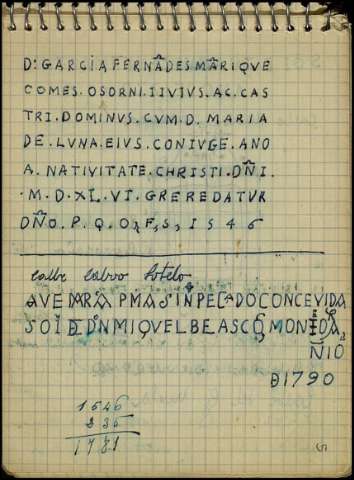 D. GARCIA FERNÃDES MÃRIQVE
COMES. OSORNI. IIVIVS. AC. CAS
TRI. DOMINVS. CVM. D. MARIA
DE. LVNA. EIVS. CONIVGE. ANO
A. NATIVITATE. CHRISTI. DÑI.
·M. D. XL. VI. GREREDATVR
DÑO. P. Q. O, F, S, 1546
calle calvo Sotelo
AVE MARIA PMA SIN PECADO CONCEVIDA
SOI DE DN MIQVEL BEASCO
ÑIO
1790
1546
235
1781